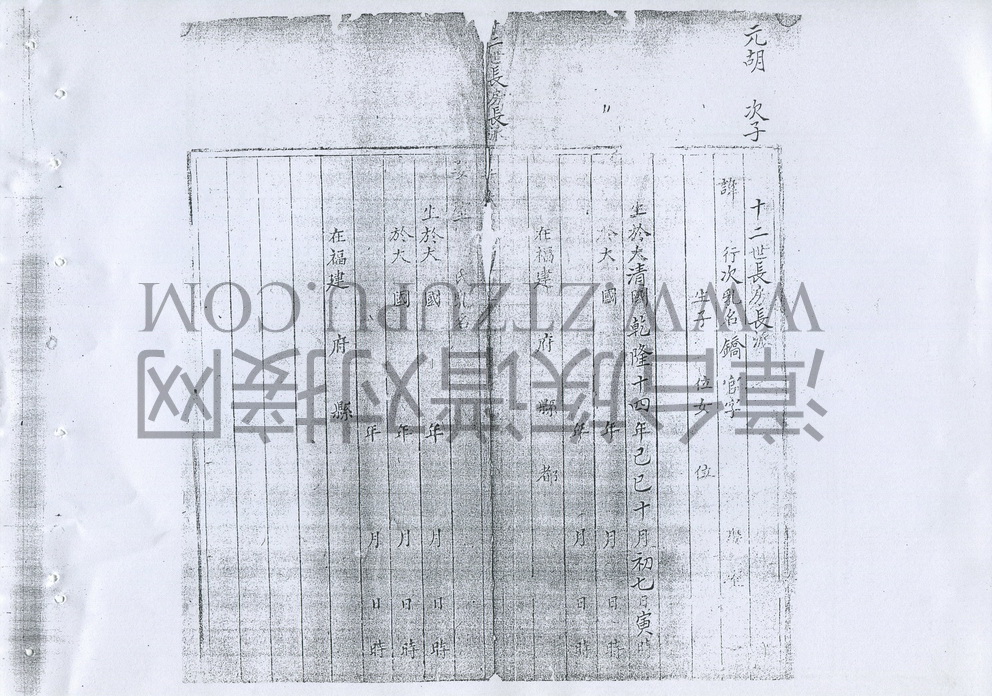 元胡 次子
十二世長房長派
諱 行次乳名鐈 官字
生子 位女 位
生於大清國乾隆十四年己巳十月初七日寅時
於大 國 年 月 日 時
年 月 日 時
在福建 府 縣 都
二世長房長派
室 氏 乳名
生於大 國 年 月 日 時
於大 國 年 月 日 時
年 月 日 時
在福建 府 縣
WWW.ZTZUPU.COM
漳台族谱对接网